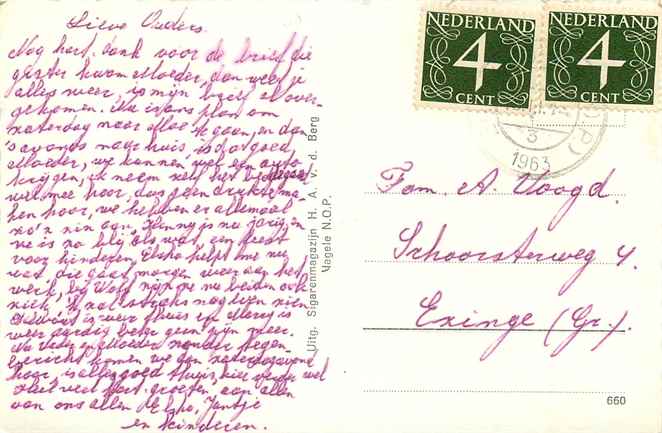 Lieve Ouders.
Nog hart. dank voor de brief die
gister kwam Moeder, dan weet u
alles weer, is mijn brief al over-
gekomen. Nu is ons plan om
zaterdag naar te gaan, en dan
's avonds naar huis, is dat goed
Moeder, we kunnen wel een auto
krijgen, ik neem zelf het
wel mee hoor, dus geen drukte ma-
ken hoor, we hebben er allemaal
zo'n zin aan, Jenny is nu jarig, en
ze is zo blij, als wat, een feest
voor kinderen. Elsko helpt me nu
wat, die gaat morgen weer aan het
werk, bij zijn ze nu beiden ook
ziek, ik zal straks nog even zien
is weer thuis en is
weer aardig beter geen pijn meer.
Nu Vader en Moeder zonder tegen-
bericht komen we dan zaterdagavond
hoor, is alles goed thuis, hier verder wel
veel hart. groeten aan allen
van ons allen Elsko, Jantje
en kinderen.
Uitg. Sigarenmagazijn H. A. v. d. Berg
Nagele N.O.P.
NEDERLAND
4
CENT
NEDERLAND
4
CENT
3
1963
Fam. A. Voogd.
Schoorsterweg 4.
Exinge (Gr.).
660